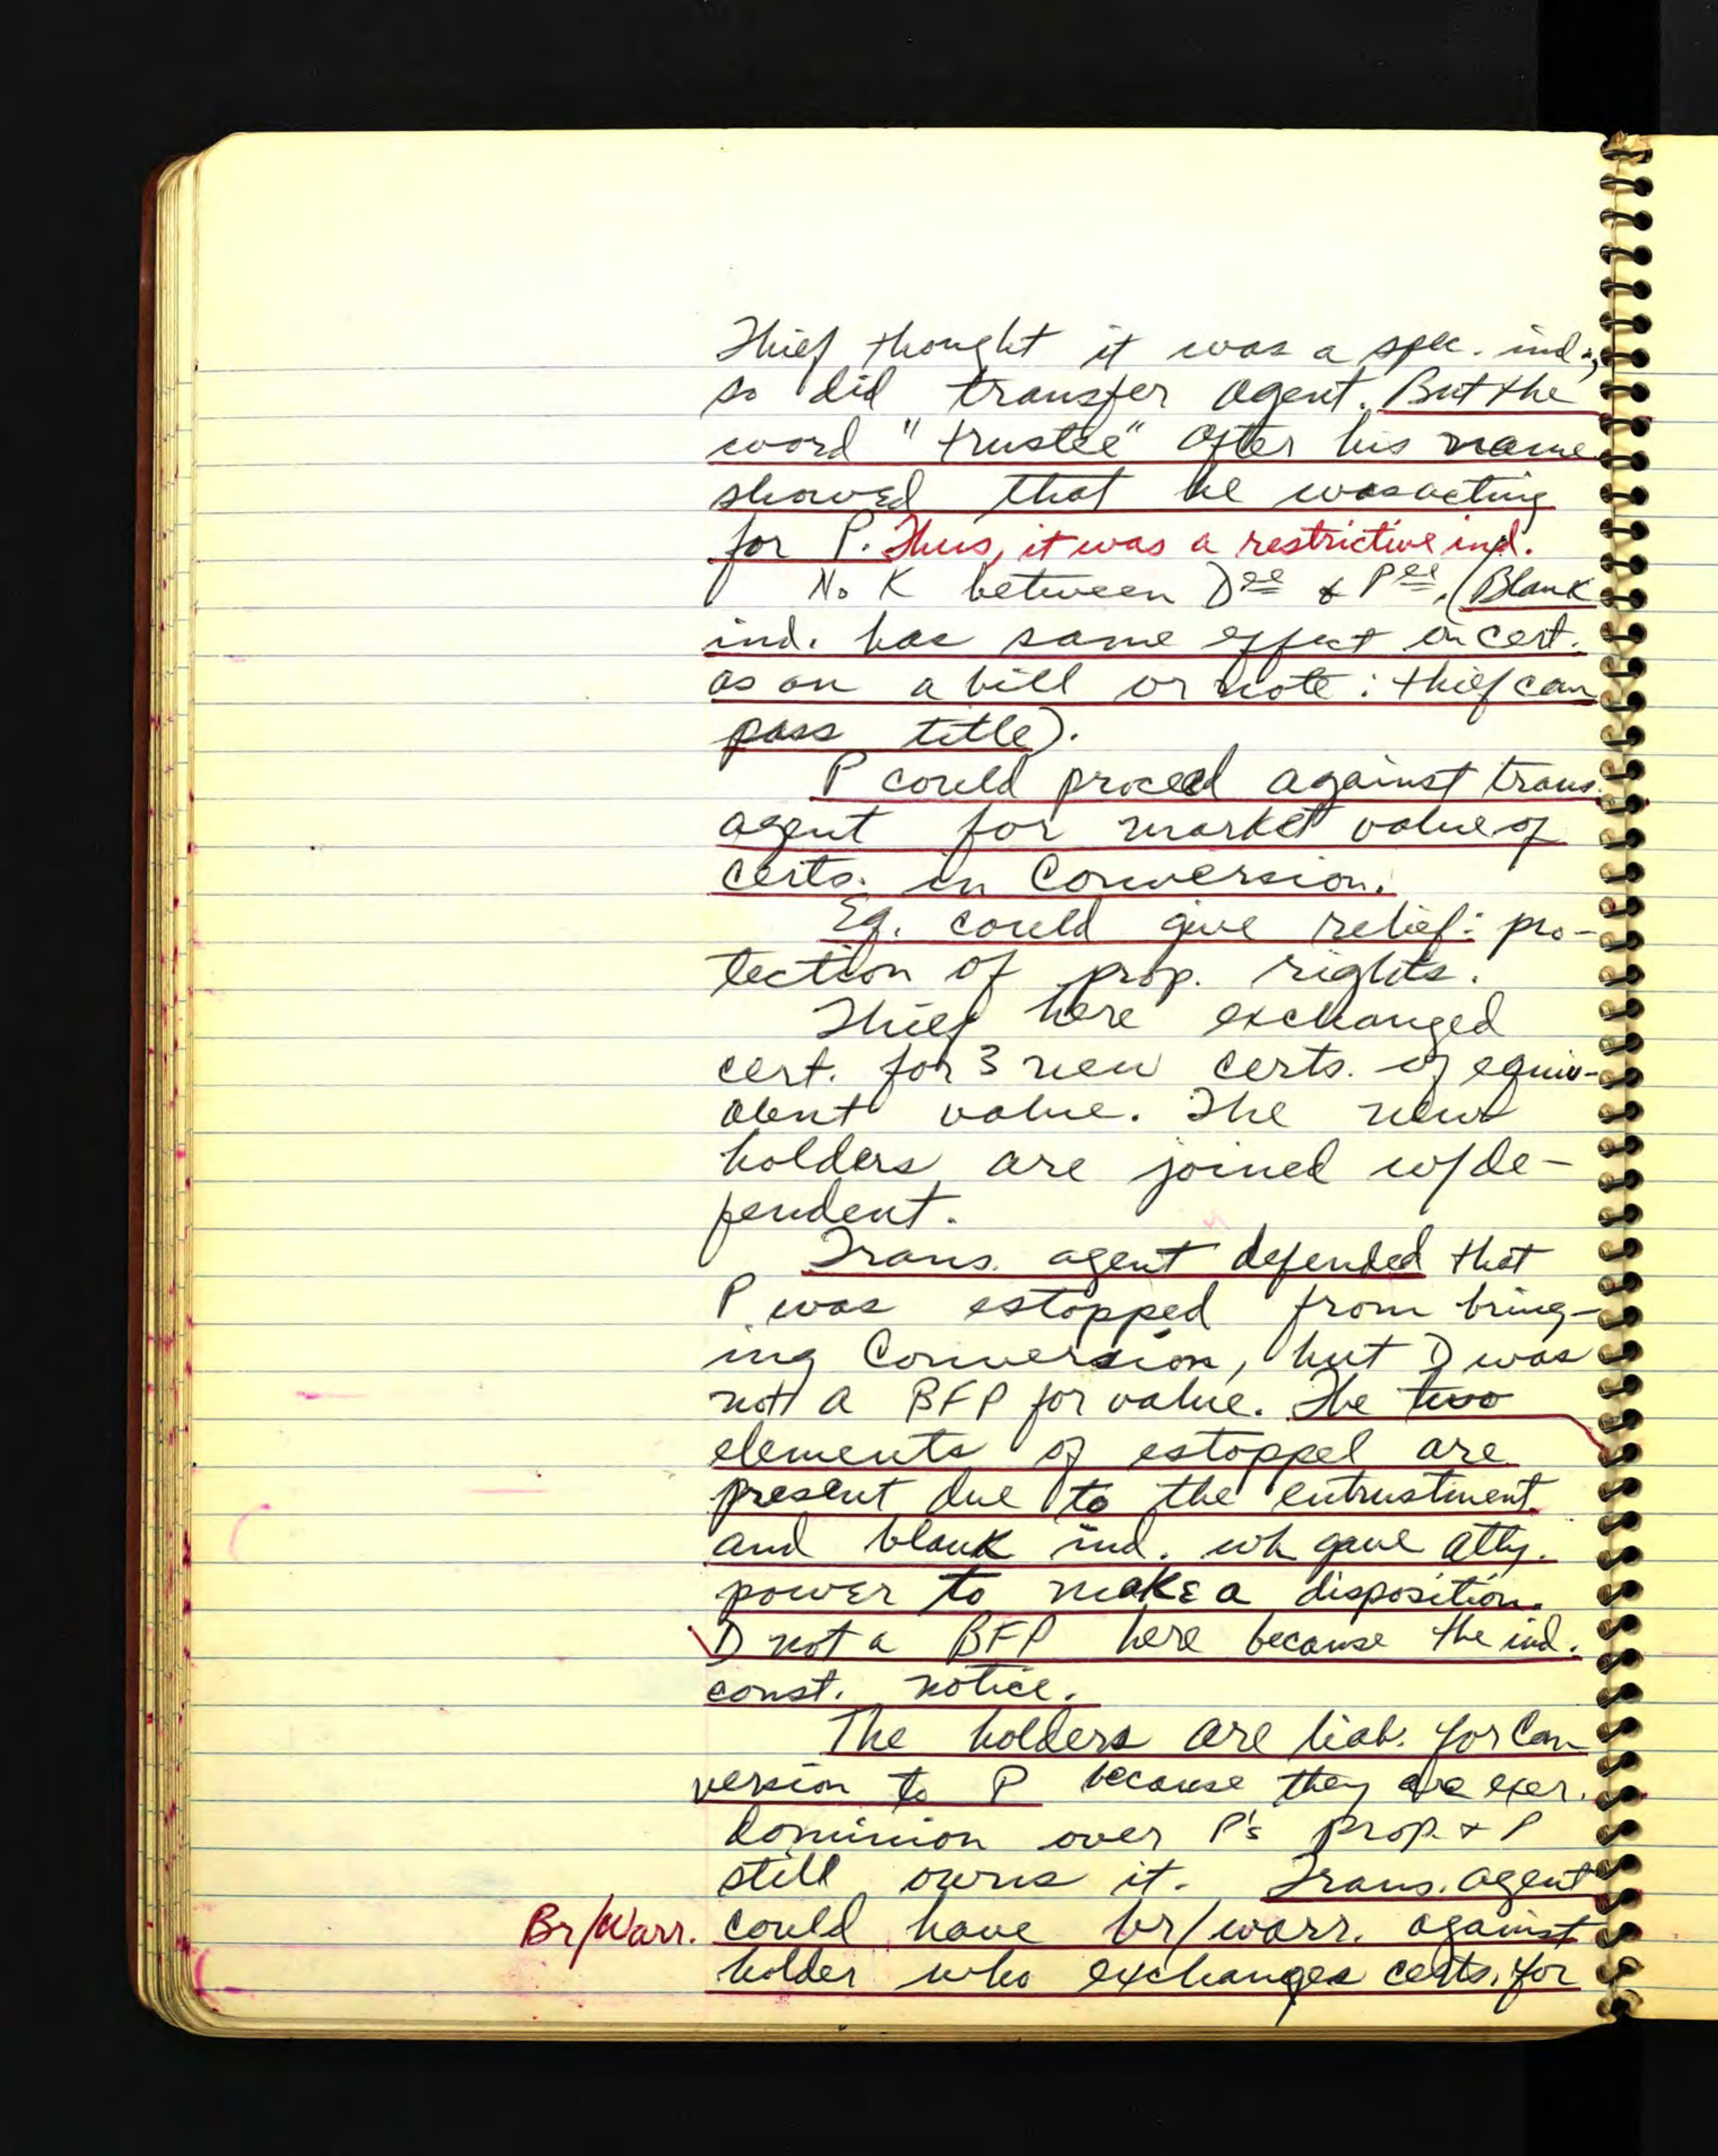 Thief thought it was a spec. ind.,
so did transfer agent. But the
word "trustee" after his name
showed that he was acting
for P. Thus, it was a restrictive ind.
No K between Dee & Pee. (Blank
ind. has same effect on cert.
as on a bill or note: thief can
pass title).
P could proceed against trans.
agent for market value of
certs. in Conversion.
Eq. could give relief: pro-
tection of prop. rights.
Thief here exchanged
cert. for 3 new certs. of equiv-
alent value. The new
holders are joined w/de-
fendent.
Trans. agent defended that
P was estopped from bring-
ing Conversion, but D was
not a BFP for value. The two
elements of estoppel are
present due to the entrustment
and blank ind. wh gave atty.
power to make a disposition.
D not a BFP here because the ind.
const. notice.
The holders are liab. for Con
version to P because they are exer.
dominion over P's prop. & P
still owns it. Trans. agent
Br/Warr. could have br/warr. against
holder who exchanges certs. for